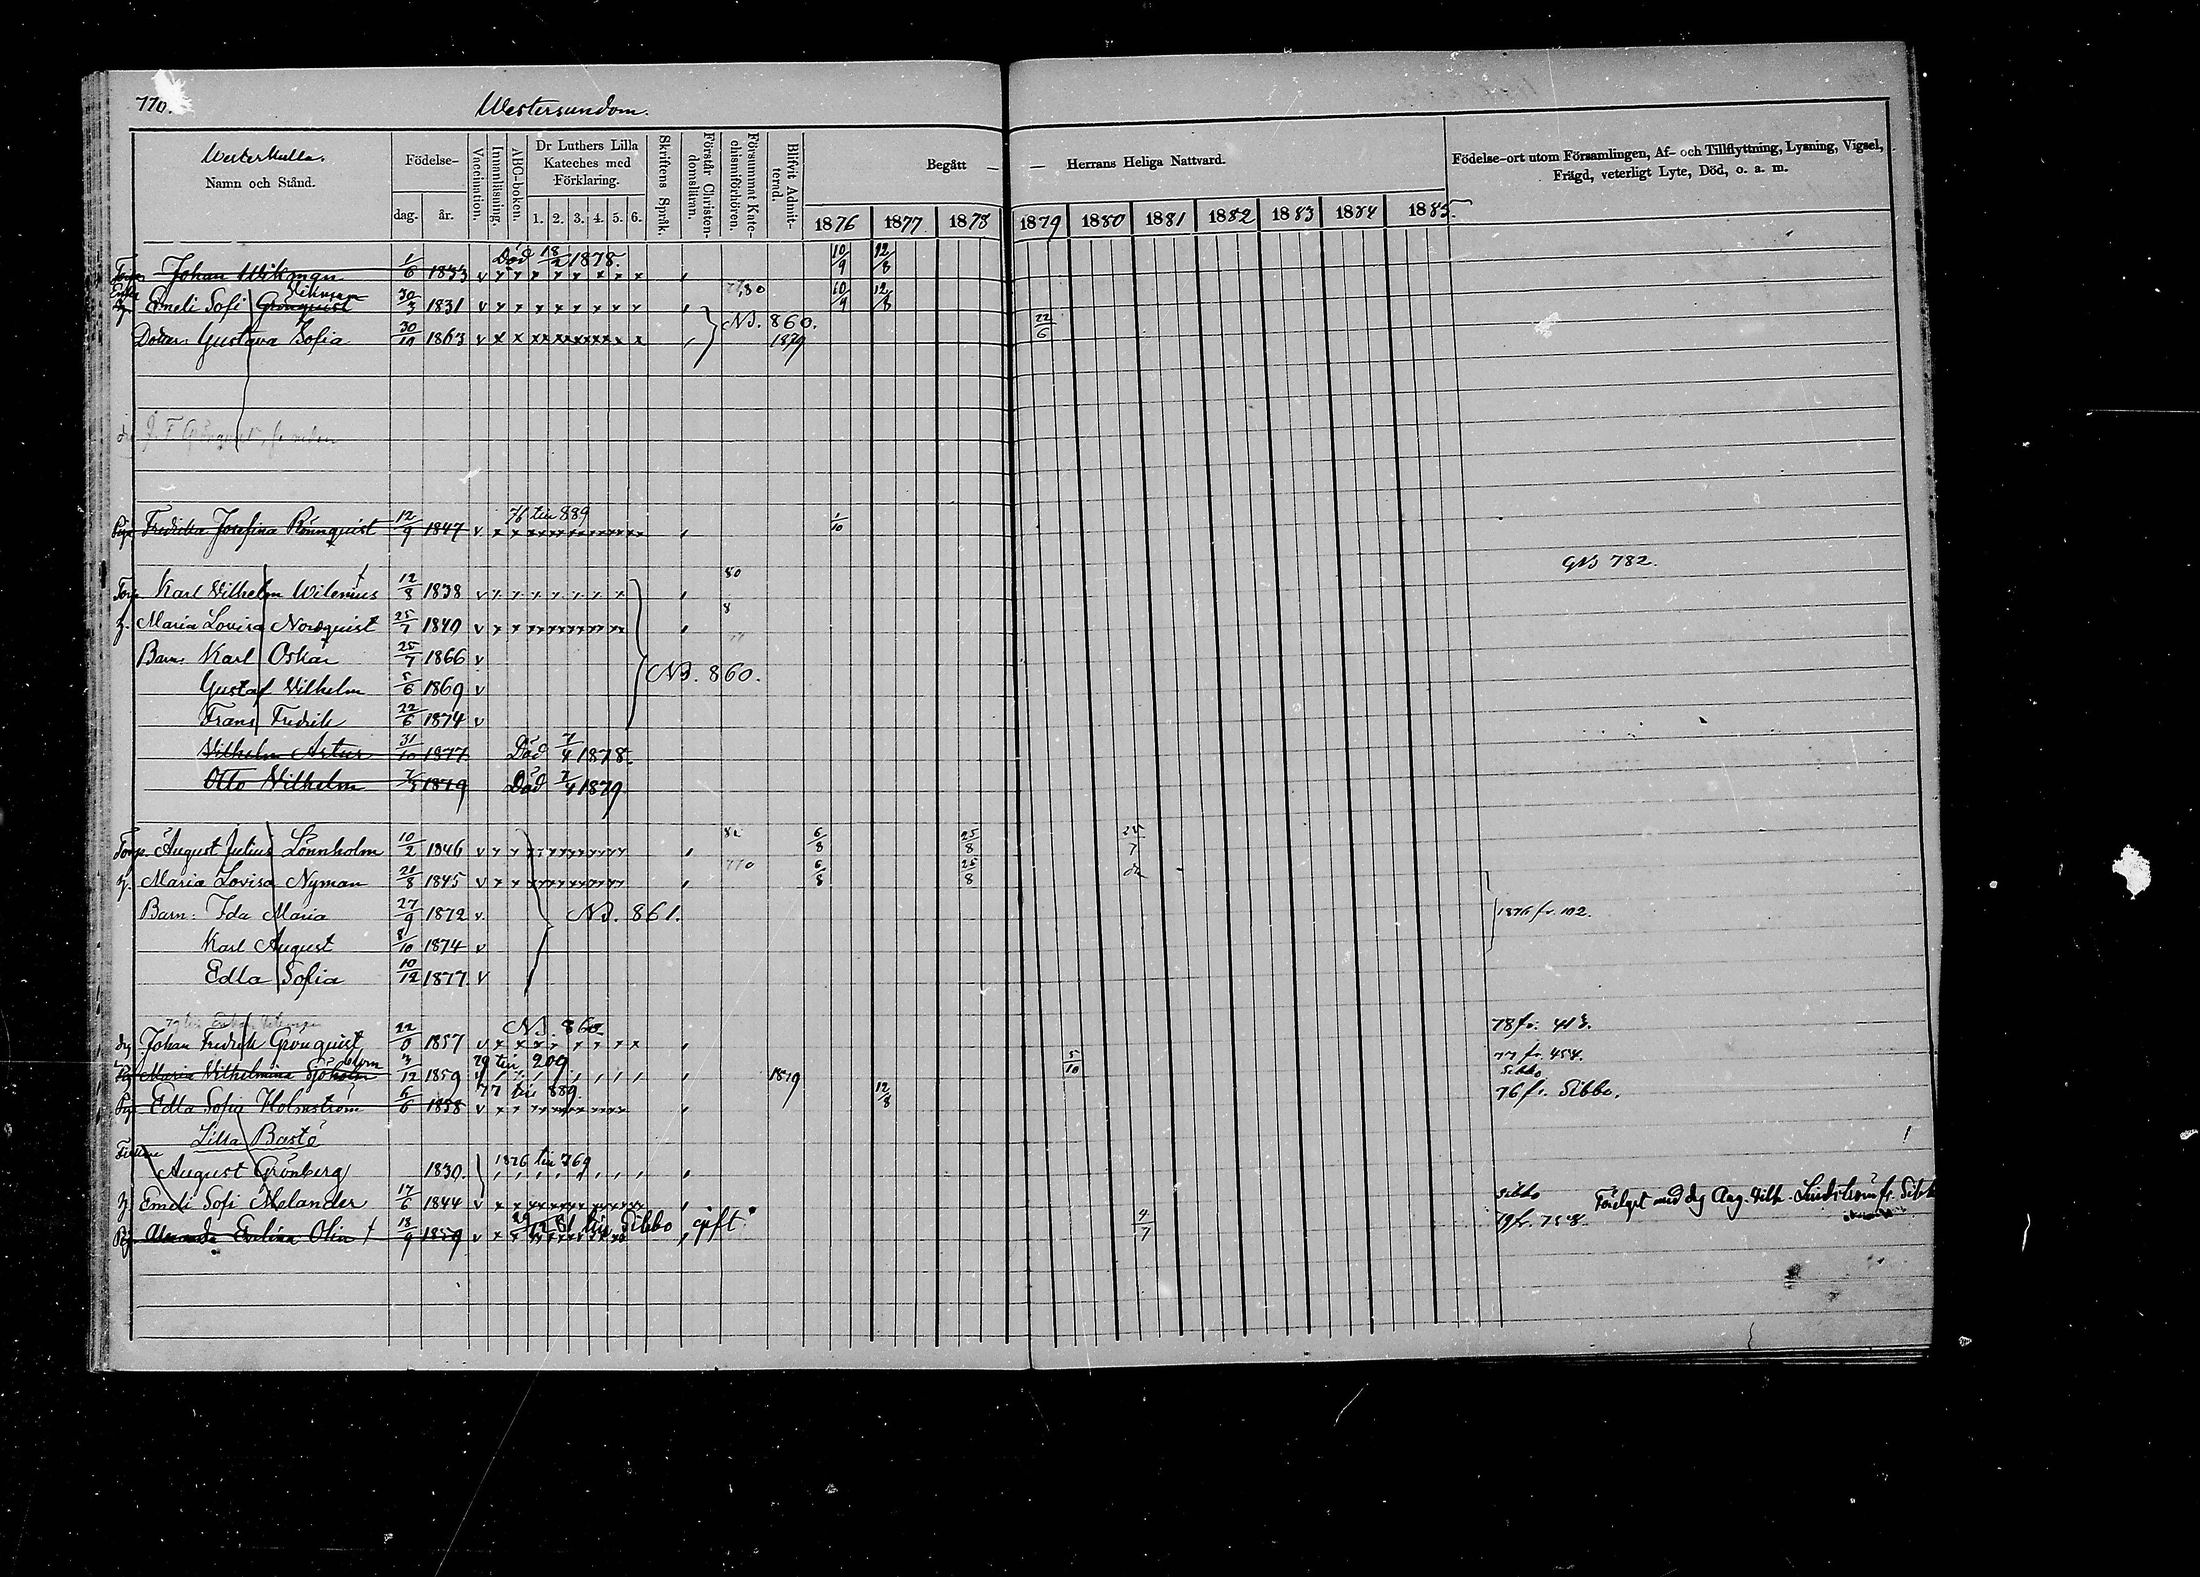 770.
Westersundom.
Westerkulla.
Namn och Stånd.
Födelse-
dag. år.
Vaccination.
Innanläsning.
ABC-boken.
Dr Luthers Lilla Kateches med Förklaring.
1. 2. 3. 4. 5. 6.
Skriftens Språk.
Förstår Christendomsläran.
Försummat Katechismiförhören.
Blifvit Admitterad.
Begått — — Herrans Heliga Nattvard.
1876 1877 1878 1879 1880 1881 1882 1883 1884 1885.
Födelse-ort utom Församlingen, Af- och Tillflyttning, Lysning, Vigsel,
Frägd, veterligt Lyte, Död, o. a. m.
Död 18/2 1878.
Torp. Johan Wikman 1/6 1833 v 10/9 12/8
Enka Wikman 77,80
h. Emeli Sofi Grönquist 30/3 1831 v 10/9 12/8
NB. 860.
Dotter: Gustava Sofia 30/10 1863 v 1879 22/6
J. F Grönquist, se nedan
76 till 889
Pig. Fredrika Josefina Rönnquist 12/9 1847 v 1/10
GNB 782.
80
Torp. Karl Vilhelm Wilenius 12/8 1838 v
8
h. Maria Lovisa Nordquist 25/7 1840 v
77
Barn: Karl Oskar 25/7 1866 v
NB. 860.
Gustaf Vilhelm 5/6 1869 v
Frans Fredrik 22/6 1874 v
Vilhelm Artur 31/10 1877 Död 7/4 1878.
Otto Vilhelm 1879 Död 7/4 1879
Torp. August Julius Lönnholm 10/2 1846 v 6/8 25/8 24/7
770
h. Maria Lovisa Nyman 21/8 1845 v 6/8 25/8
Barn: Ida Maria 27/9 1872 v NB. 861. 1876 fr. 102.
Karl August 8/10 1874 v
Edla Sofia 10/12 1877 v
NB. 860
drg Johan Fredrik Grönquist 22/8 1857 v 78 fr. 413.
blom 79 till 209 77 fr. 454.
Pig Maria Vilhelmina Sjöholm 3/12 1859 1879 5/10 Sibbo
77 till 889.
Pig. Edla Sofia Holmström 6/6 1858 v 12/8 76 fr. Sibbo.
Lilla Bastö
1876 till 769
August Grönberg 1830.
h. Emeli Sofi Melander 17/6 1844 v Sibbo
29/12 81 till Sibbo, gift
Förelyst med drg Aug. Vilh. Lindström fr. Sibbo
Pig. Amanda Evelina Olin 18/9 1859 v 4/7 79 fr. 758.